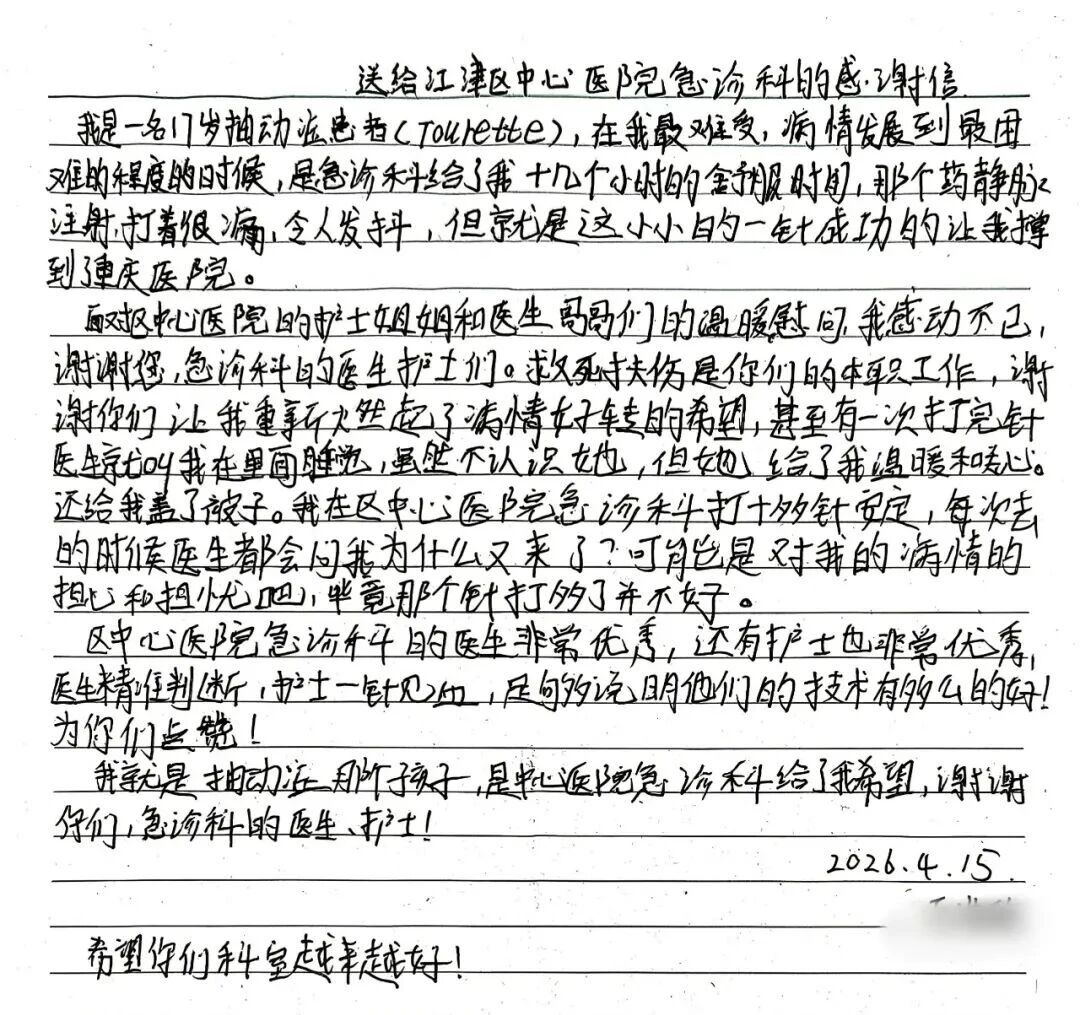 送给江津区中心医院急诊科的感谢信
我是一名17岁抽动症患者(Tourette)，在我最难受，病情发展到最困
难的程度的时候，是急诊科给了我十几个小时的舒服时间，那个药静脉
注射，打着很痛，令人发抖，但就是这小小的一针成功的让我撑
到重庆医院。
面对区中心医院的护士姐姐和医生哥哥们的温暖慰问，我感动不已，
谢谢您，急诊科的医生护士们。救死扶伤是你们的本职工作，谢
谢你们让我重新燃起了病情好转的希望，甚至有一次打完针
医生就叫我在里面睡觉，虽然不认识她，但她给了我温暖和关心。
还给我盖了被子。我在区中心医院急诊科打十多针安定，每次去
的时候医生都会问我为什么又来了？可能也是对我的病情的
担心和担忧吧，毕竟那个针打多了并不好。
区中心医院急诊科的医生非常优秀，还有护士也非常优秀，
医生精准判断，护士一针见血，足够说明他们的技术有多么的好！
为你们点赞！
我就是抽动症那个孩子，是中心医院急诊科给了我希望，谢谢
你们，急诊科的医生、护士！
2026.4.15.
希望你们科室越来越好！